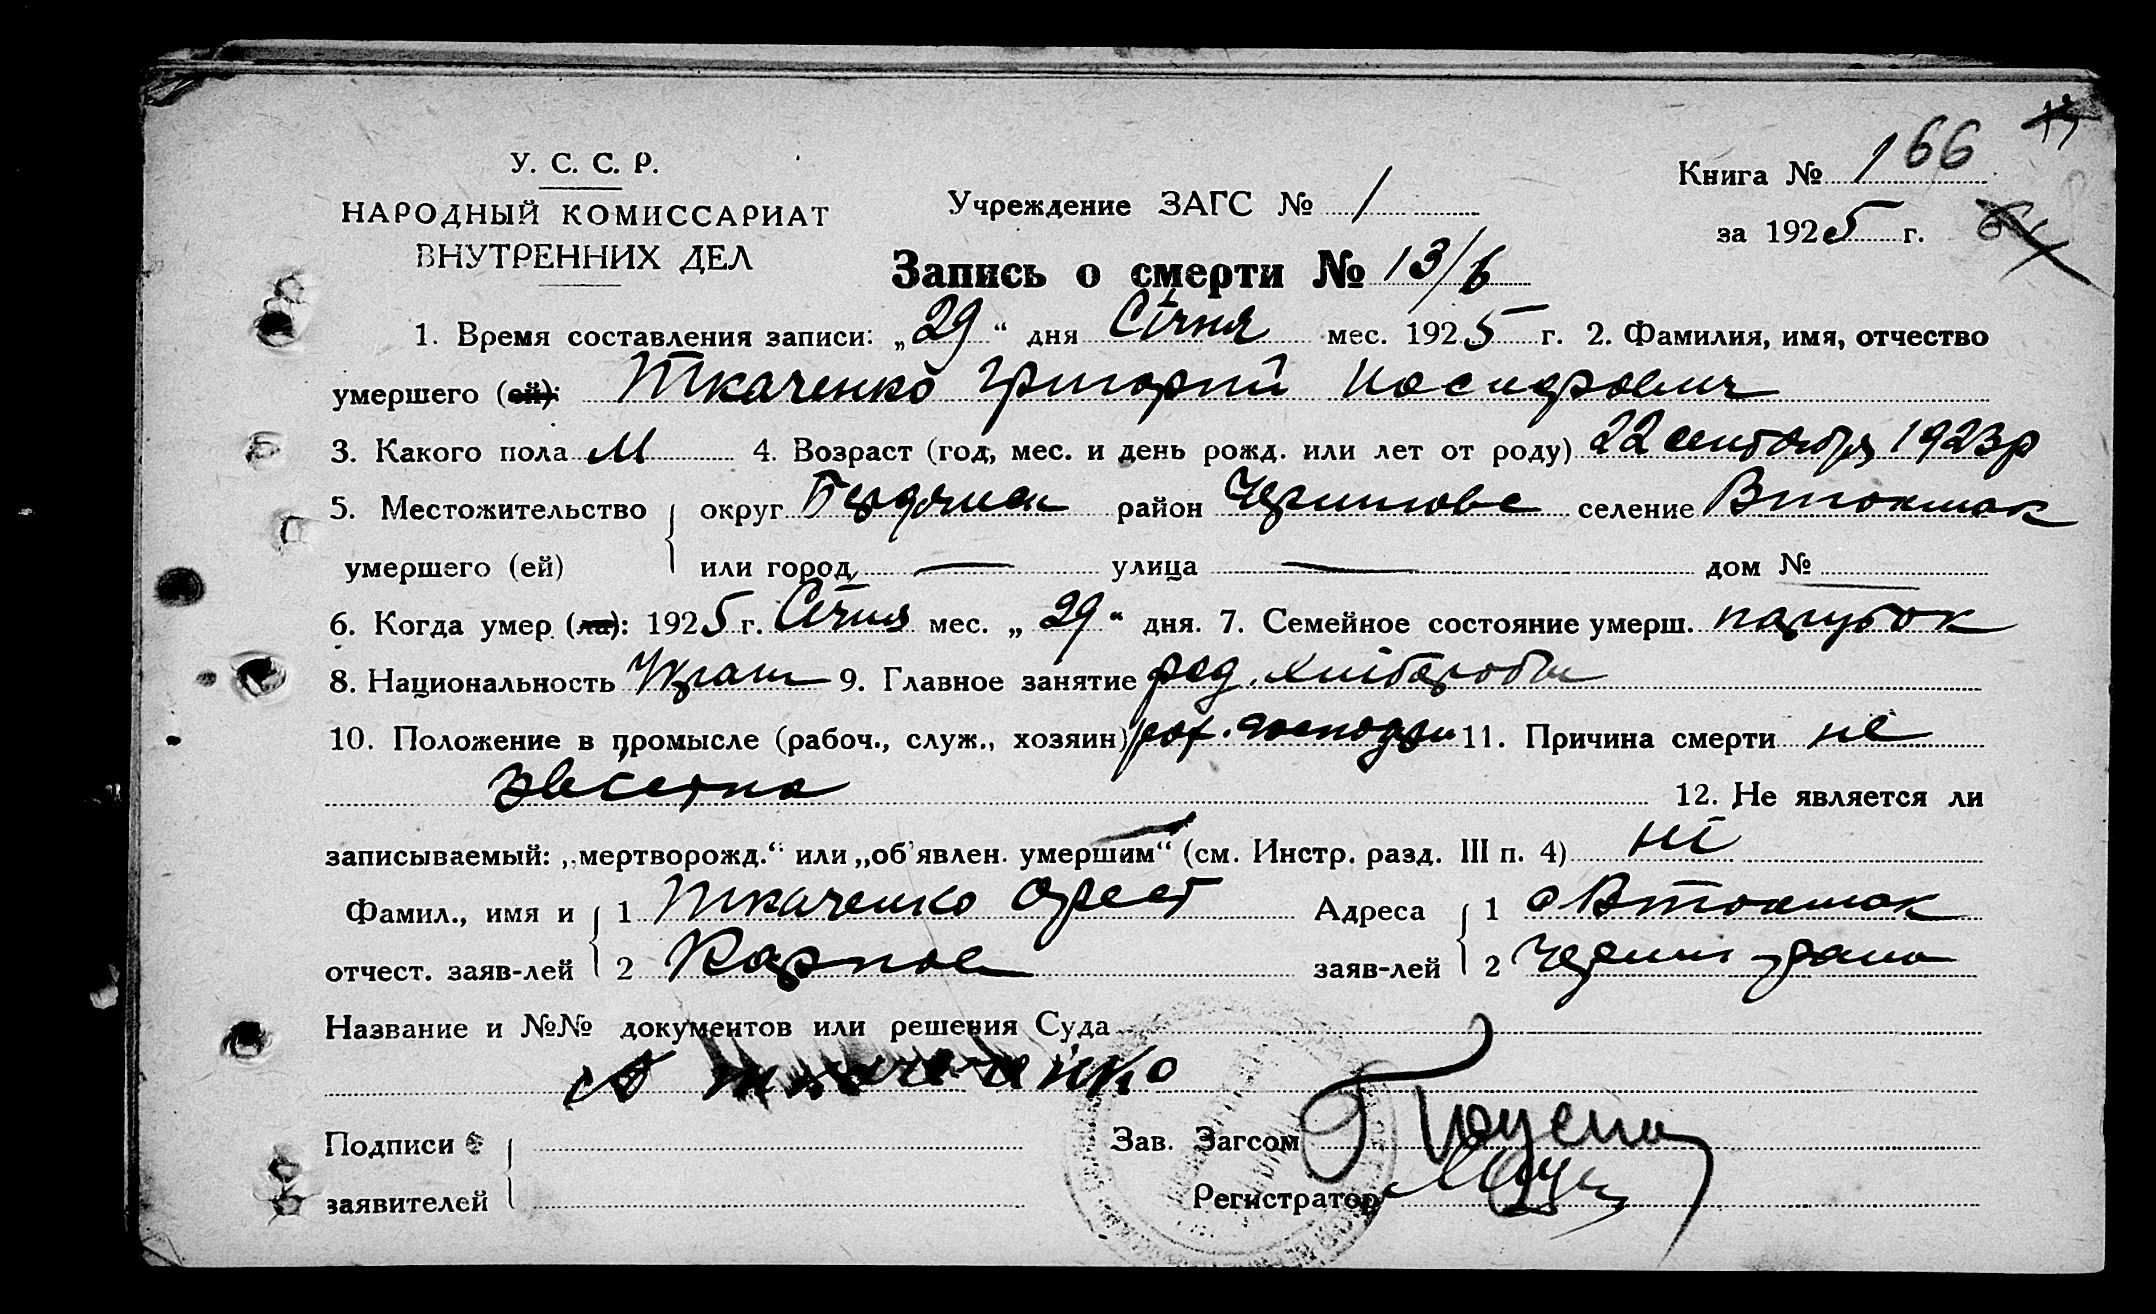 У. С. С. Р.
НАРОДНЫЙ КОМИССАРИАТ
ВНУТРЕННИХ ДЕЛ
Учреждение ЗАГС № 1
Книга № 1 66
за 1925 г.
Запись о смерти № 13/6
1. Время составления записи: „29“ дня Січня мес. 1925 г. 2. Фамилия, имя, отчество
умершего (ей): Ткаченко Григорий
3. Какого пола М 4. Возраст (год, мес. и день рожд. или лет от роду) 22 сентября 1923 р
5. Местожительство округ район селение Втокмак
умершего (ей) или город — улица — дом № —
6. Когда умер (ла): 1925 г. Січня мес. „29“ дня. 7. Семейное состояние умерш. парубок
8. Национальность Украин 9. Главное занятие род. хлібороби
10. Положение в промысле (рабоч., служ., хозяин) 11. Причина смерти не
звістна 12. Не является ли
записываемый: „мертворожд.“ или „об'явлен. умершим“ (см. Инстр. разд. III п. 4) ні
Фамил., имя и 1 Ткаченко Орест Адреса 1 с Втокмак
отчест. заяв-лей 2 заяв-лей 2
Название и №№ документов или решения Суда
Ткаченко
Подписи Зав. Загсом
заявителей Регистратор